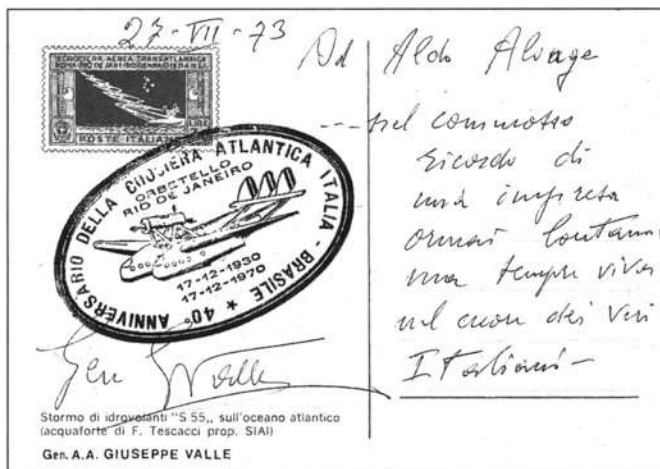 27-VII-73
CROCIERA AEREA TRANSATLANTICA
POSTE ITALIANE
LIRE
40° ANNIVERSARIO DELLA CROCIERA ATLANTICA ITALIA-BRASILE ★
ORBETELLO
RIO DE JANEIRO
17-12-1930
17-12-1970
Gen Valle
Stormo di idrovolanti "S 55,, sull'oceano atlantico
(acquaforte di F. Tescacci prop. SIAI)
Gen. A.A. GIUSEPPE VALLE
Ad Aldo
nel commosso
ricordo di
una impresa
ormai lontana
ma sempre viva
nel cuor dei veri
Italiani-